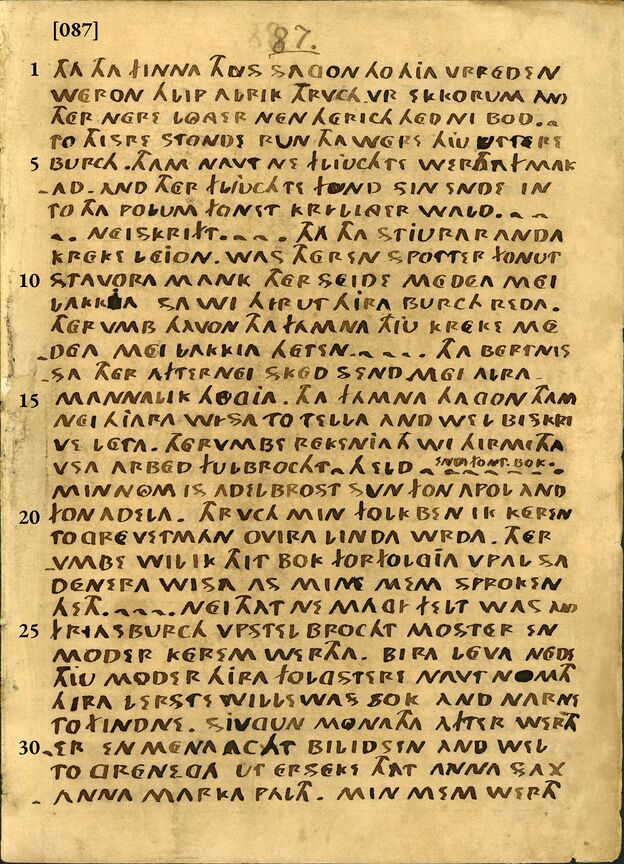 [087]
87.
1 THA THA FINNA THUS SAGON HO HIA VRREDEN
WERON HLIP ALRIK THRVCH VR EKKORUM AND
THER NERE LONGER NEN HERICH HED NI BOD.
TO THISRE STONDE RUN THA WERE HIU UTTERE
5 BURCH. THAM NAVT NE FLIUCHTE WERTHATH AFMAK
AD. AND THER FLIUCHTE FOND SIN ENDE IN
TO THA POLUM FONET KRILINGER WALD.
NEISKRIFT. THA THA STIURAR ANDA
KREKE LEION. WAS THER EN SPOTTER FONUT
10 STAVORA MANK THER SEIDE MEDEA MEI
LAKKIA SA WI HIR UT HIRA BURCH REDA.
THER VMB HAVON THA FAMNA THIU KREKE ME
DEA MEI LAKKIA HETEN. THA BERTNIS
SA THER AFTER NEI SKED SEND. MEI ALRA
15 MANNALIK HUGIA. THA FAMNA HAGON THAM
NEI HIARA WISA TO TELLA AND WEL BISKRI
VE LETA. THERVMBE REKENIATH WI HIRMITHA
VSA ARBED FULBROCHT. HELD ENDE FONT BOK.
MIN NOM IS ADELBROST SUN FON APOL AND
20 FON ADELA. THRVCH MIN FOLK BEN IK KEREN
TO GREVETMAN OVIRA LINDA WRDA. THER
VMBE WIL IK THIT BOK FORFOLGIA VP AL SA
DENERA WISA AS MINE MEM SPROKEN
HETH. NEI THAT NE MAGI FELT WAS AND
25 FRIASBURCH VP STEL BROCHT MOSTER EN
MODER KEREM WERTHA. BI RA LEVA NEDE
THIU MODER HIRA FOLGSTERE NAVT NOMTH
HIRA LERSTE WILLE WAS SOK AND NARNE
TO FINDNE. SIVGUN MONATHA AFTER WERTH
30 ER EN MENA ACHT BILIDSEN AND WEL
TO GRENEGA UT ERSEKE THAT ANNA SAX
ANNA MARKA PALTH. MIN MEM WERTH